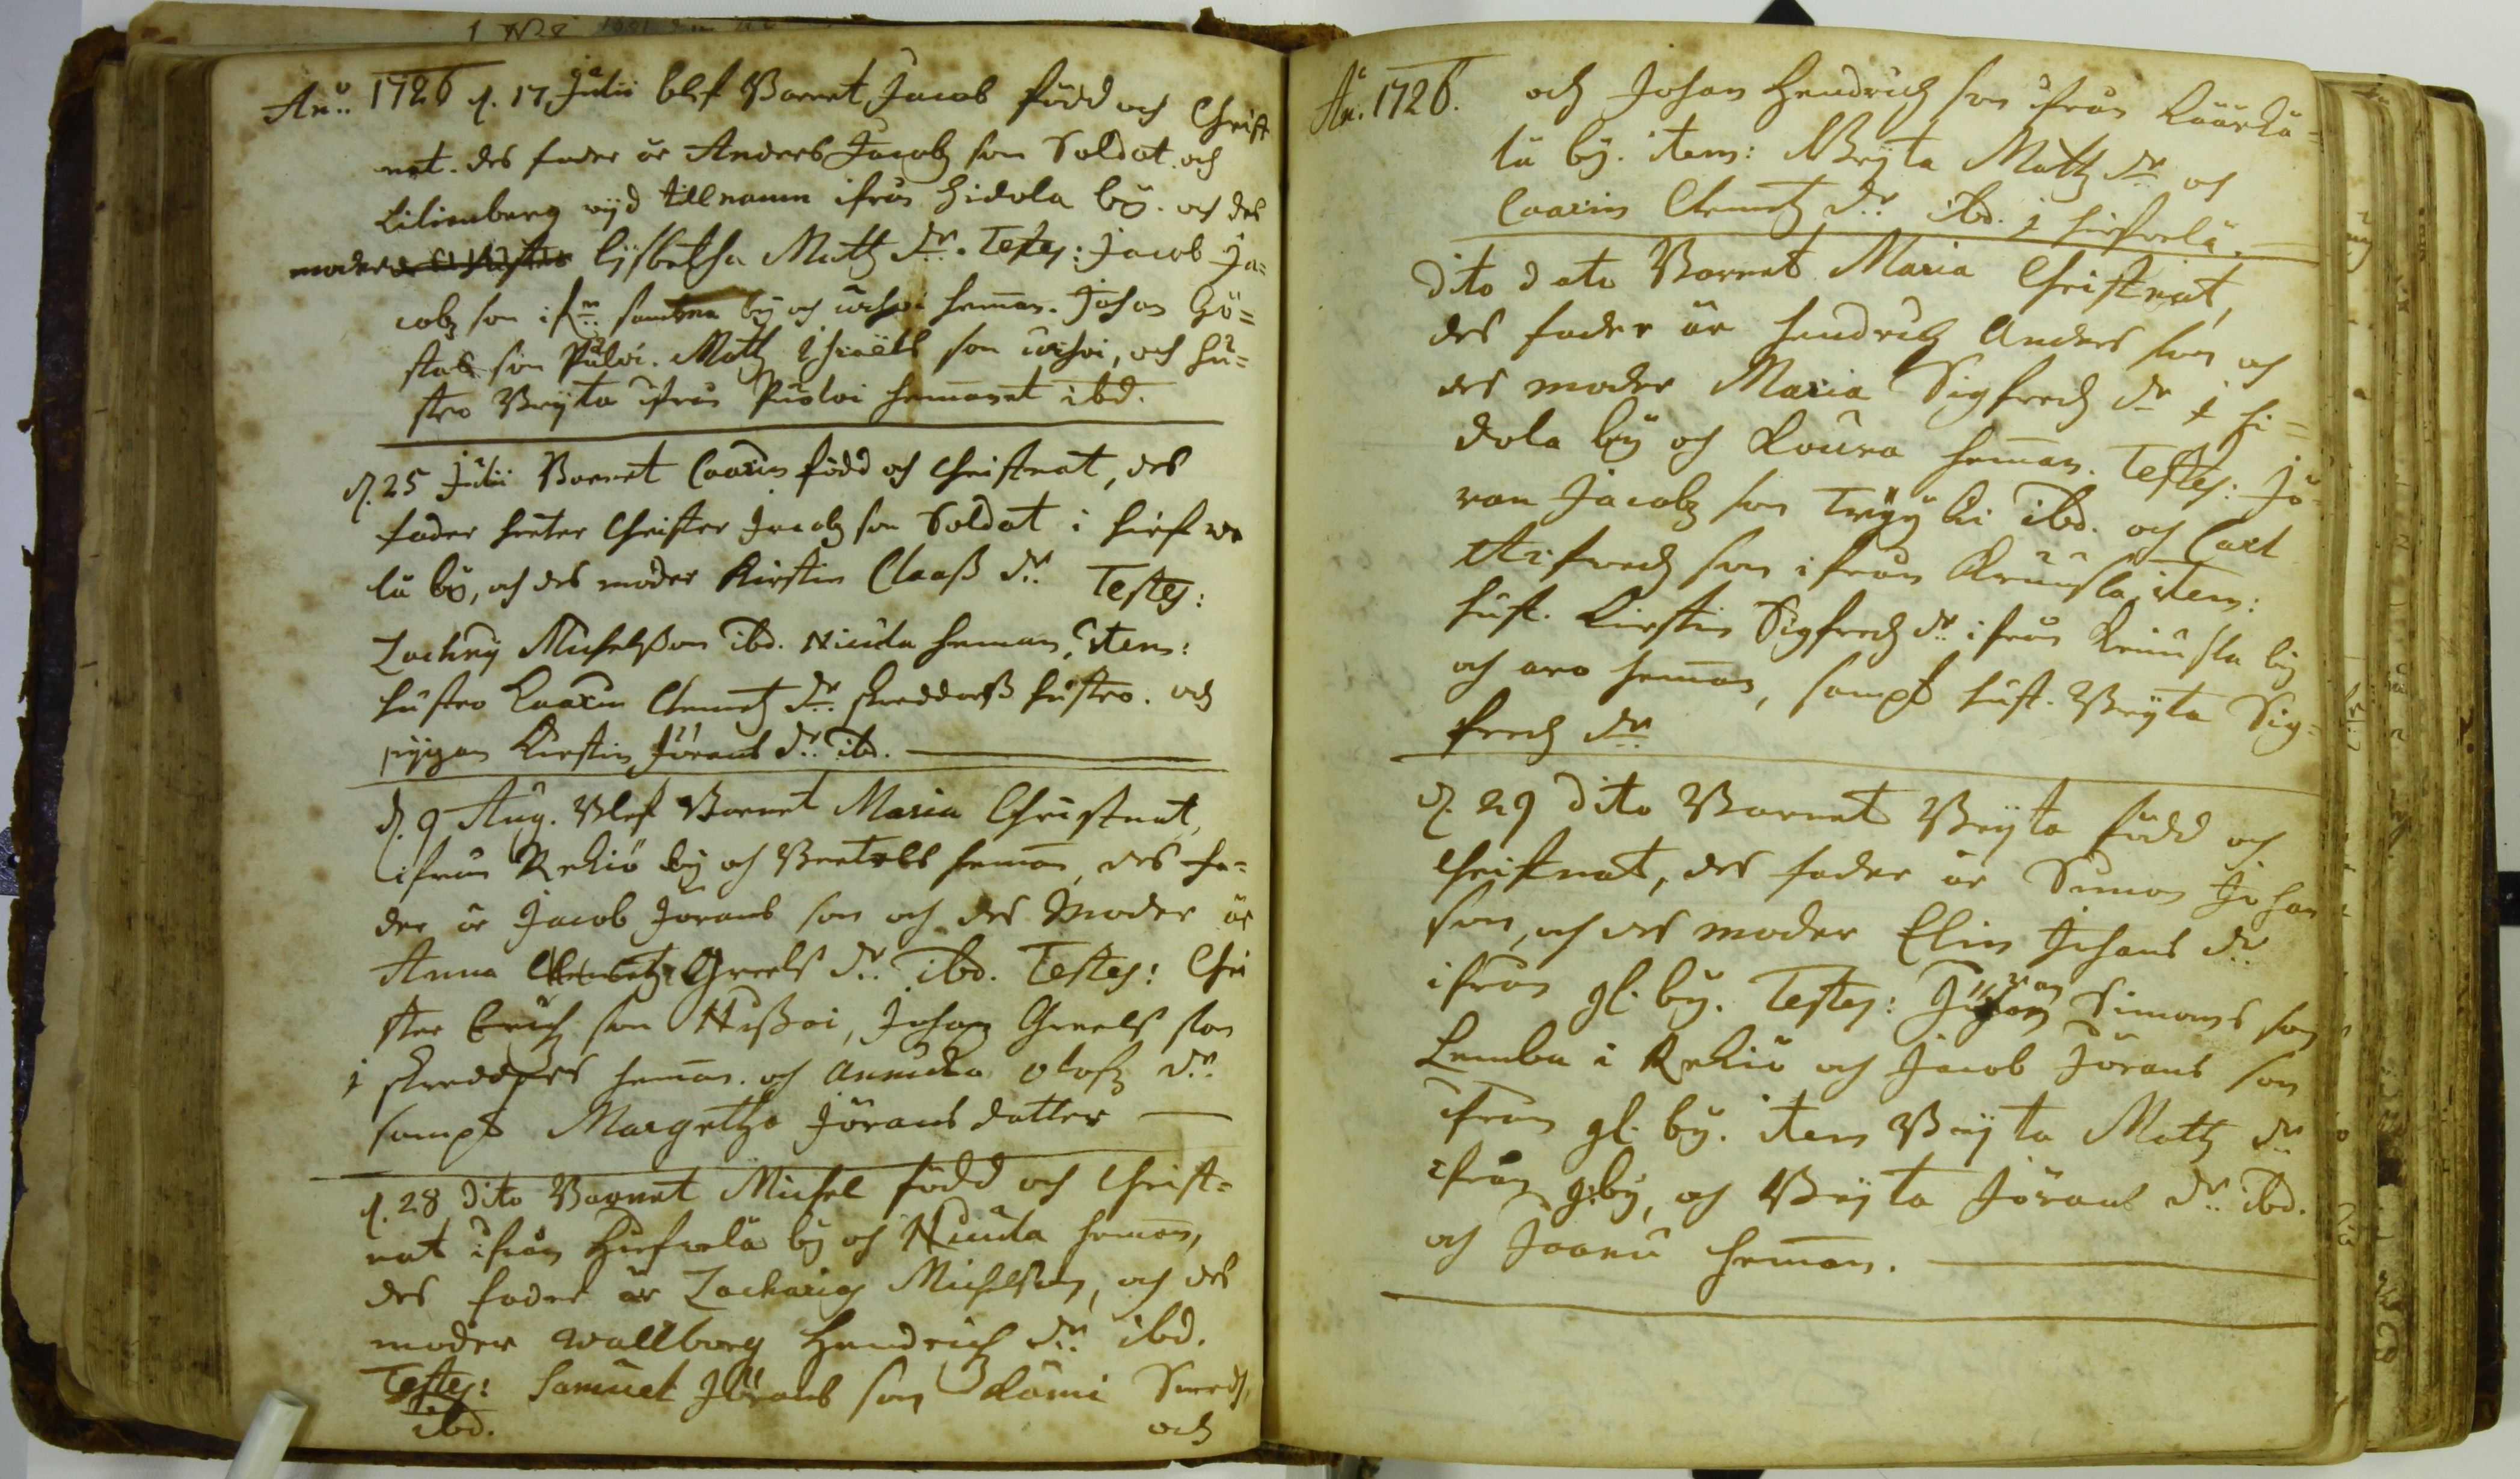 An͞o: 1726 d. 17 Julii blef Barnet Jacob född och Christ
nat. des fader är Anders Jacobs son Soldat och
Lilienberg wijd tillnamn ifrån Hidola by. och des
moder Lijsbetha Matz dr. Testes: Jacob Ja=
cobs son i samma by och heman. Johan Gö=
stas son Pulvi. Matz son och hu=
stro Bryta ifrån hemanet ibd.
d. 25 Julii Barnet Caarin född och Christnat, des
fader heter Christer Jacobs son Soldat i Hirf we
lä by, och des moder Kirstin Claaß dr. Testes:
Zachris Michelsson ibd. Niuda heman, item:
hustro Caarin Clemetz dr. skreddarß hustro. och
pijgan Kirstin Jörans dr. ibd.
d. 9 Aug. Blef Barnet Maria Christnat,
ifrån Rekiö by och Bertels heman, des fa=
der är Jacob Jörans son och des Moder är
Anna Greels dr. ibd. Testes: Chri
ster Erichs son Nißoi, Johan Greels son
i heman. och Annicka Olofs dr.
sampt Margetha Jörans datter
d. 28 dito Barnet Michel född och Christ=
nat ifrån Hirfwelä by och Niuda heman,
des fader är Zacharias Michelson, och des
moder wallborg Hendrichs dr. ibd.
Testes: Samuel Jörans son Smeds,
ibd. och
An͞. 1726. och Johan Hendrichs son ifrån
lä by. item: Bryta Matz dr. och
Caarin Clemetz dr. ibd. i Hirfvelä.
Dito dato Barnet Maria Christnat,
des fader är Hendrich Anders son och
des moder Maria Sigfreds dr. i Hi=
dola by och Koura heman. Testes: Jö=
ran Jacobs son ibd. och Carl
son ifrån item:
hust. Kirstin Sigfreds dr. ifrån by
och aro heman, sampt hust. Bryta Sig=
freds dr.
d. 29 dito Barnet Bryta född och
Christnat, des fader är Simon Johan
son, och des moder Elin Johans dr.
ifrån gl. by. Testes: Jöran Simons son
Lemba i Rekiö och Jacob Jörans son
ifrån gl. by. item Bryta Matz dr.
ifrån g. by, och Bryta Jörans dr. ibd.
och Joanu heman.